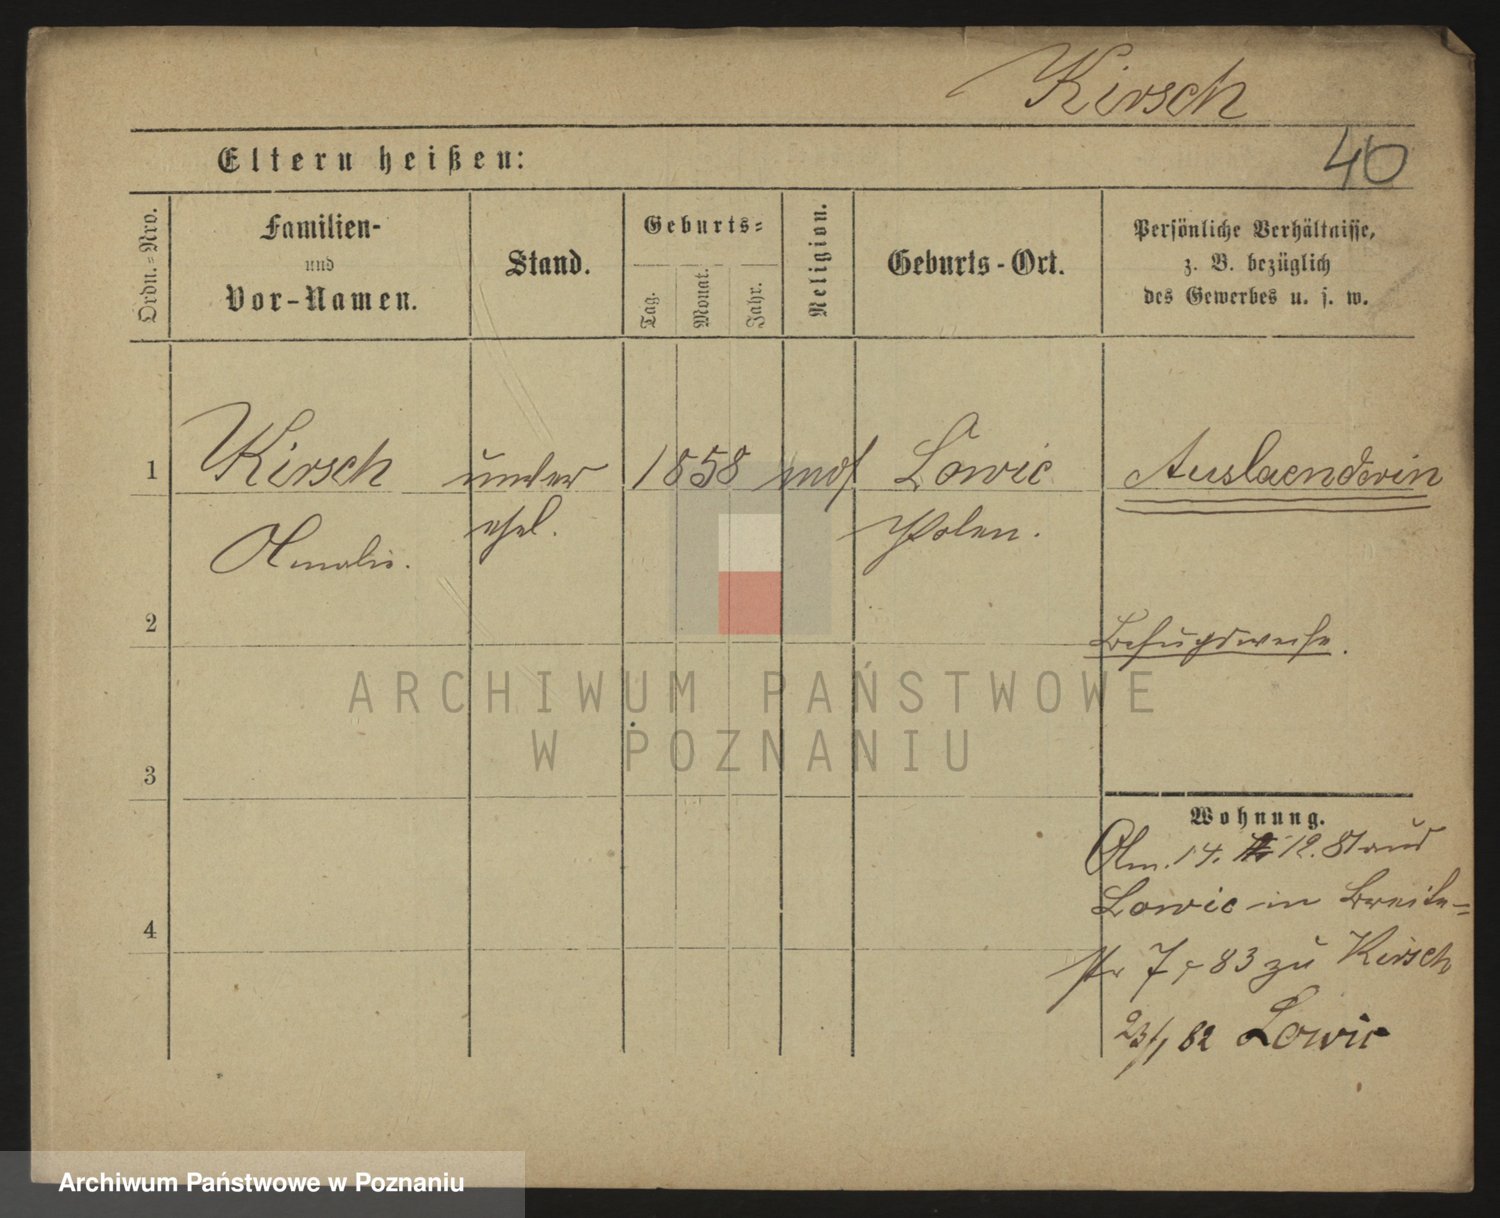 Kirsch
40
Eltern heißen:
Ordn.-Nro.
Familien-
und
Vor-Namen.
Stand.
Geburts-
Tag.
Monat.
Jahr.
Religion.
Geburts-Ort.
Persönliche Verhältnisse,
z. B. bezüglich
des Gewerbes u. s. w.
1
Kirsch
unver
1858
mos
Lowic
Auslaenderin
Amalie.
ehel.
Polen.
2
Besuchsweise.
ARCHIWUM PAŃSTWOWE
W POZNANIU
3
Wohnung.
14. 12. 81 aus
Lowic in Breite-
str 7 83 zu Kirsch
4
23/1 82 Lowic
Archiwum Państwowe w Poznaniu